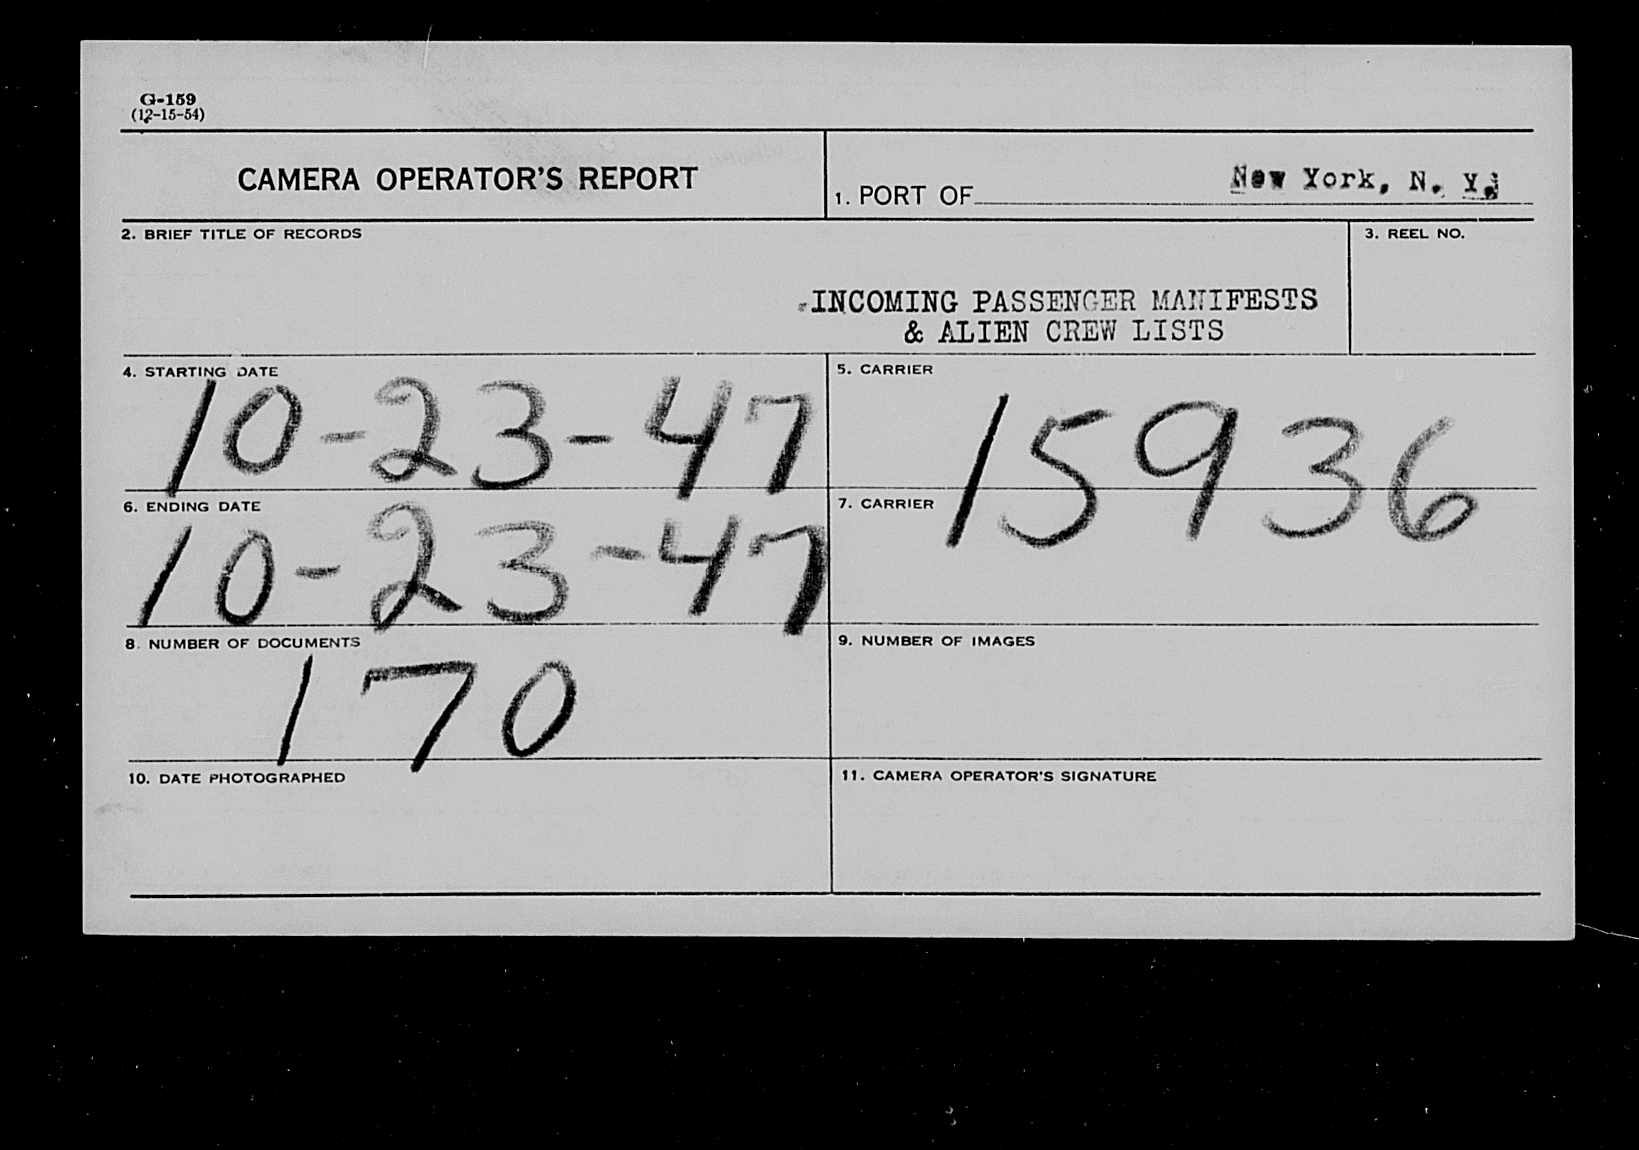 G-159
(12-15-54)
CAMERA OPERATOR'S REPORT
1. PORT OF New York, N. Y.
2. BRIEF TITLE OF RECORDS
INCOMING PASSENGER MANIFESTS
& ALIEN CREW LISTS
3. REEL NO.
4. STARTING DATE
10-23-47
5. CARRIER
15936
6. ENDING DATE
10-23-47
7. CARRIER
8. NUMBER OF DOCUMENTS
170
9. NUMBER OF IMAGES
10. DATE PHOTOGRAPHED
11. CAMERA OPERATOR'S SIGNATURE